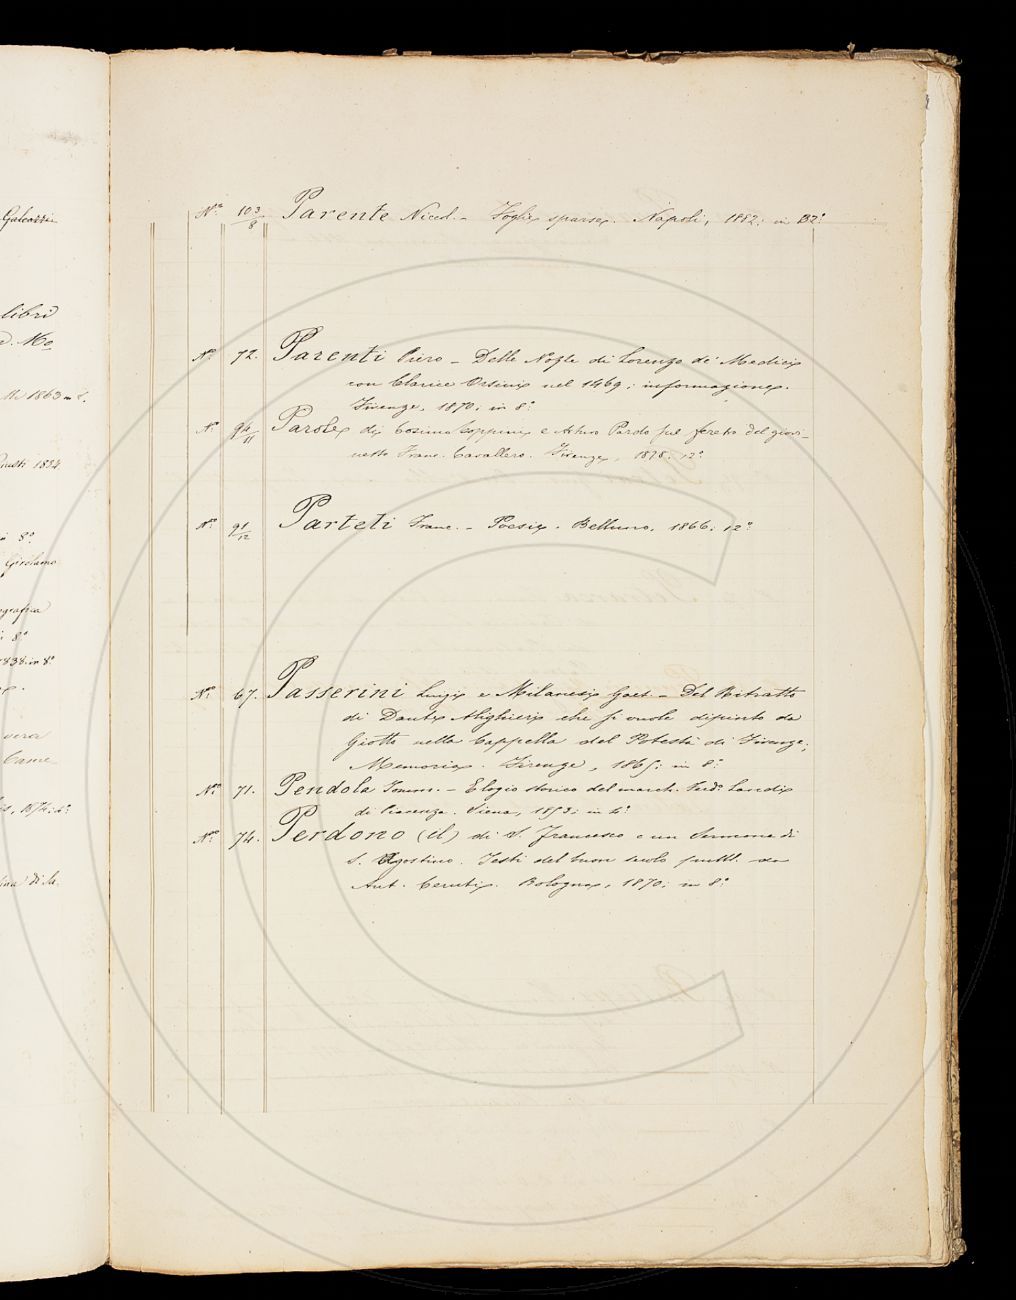 Galeazzi
libri
1863
1834
8°
Girolamo
8°
1838. in 8°
vera
1874. 4°
di Sa.
N.° 103/8 Parente Niccol. - Foglie sparse. Napoli, 1882. in 32°
N.° 72. Parenti Piero - Delle Nozze di Lorenzo de' Medici
con Clarice Orsini nel 1469; informazione.
Firenze, 1870; in 8°
N.° 94/11 Parole di Cosimo Coppini e Arturo Pardo sul feretro del giovi-
netto Franc. Cavallero. Firenze, 1878. 12°
N.° 91/12 Parteti Franc. - Poesie. Belluno, 1866; 12°
N.° 67. Passerini Luigi e Milanesi Gaet. - Del Ritratto
di Dante Alighieri che si vuole dipinto da
Giotto nella Cappella del Potestà di Firenze;
Memoria. Firenze, 1865; in 8°
N.° 71. Pendola Tomm. - Elogio storico del march. Ferd. Landi
di Piacenza. Siena, 1853; in 4°
N.° 74. Perdono (il) di S. Francesco e un Sermone di
S. Agostino. Testi del buon secolo pubbl. da
Ant. Ceruti. Bologna, 1870; in 8°